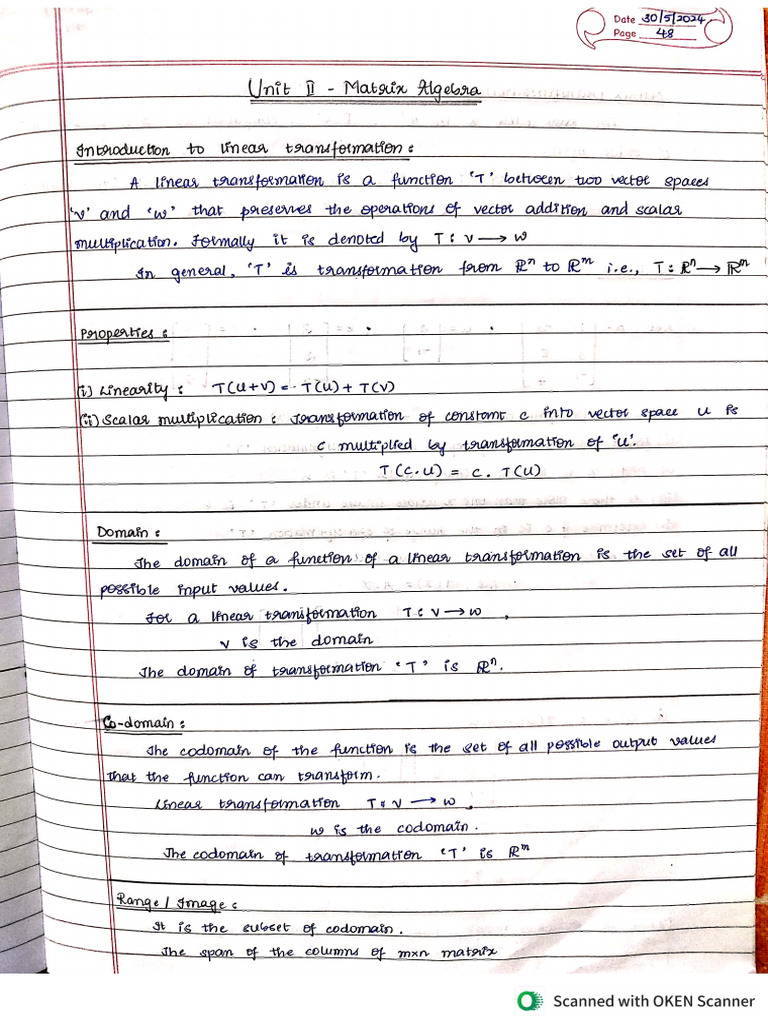 Date 30/5/2024
Page 48
Unit II - Matrix Algebra
Introduction to linear transformation :
A linear transformation is a function 'T' between two vector spaces
'v' and 'w' that preserves the operations of vector addition and scalar
multiplication. Formally it is denoted by T : v → w
In general, 'T' is transformation from ℝⁿ to ℝᵐ i.e., T : ℝⁿ → ℝᵐ
Properties :
(i) Linearity : T(u+v) = T(u) + T(v)
(ii) Scalar multiplication : Transformation of constant c into vector space u is
c multiplied by transformation of 'u'.
T (c.u) = c . T(u)
Domain :
The domain of a function of a linear transformation is the set of all
possible input values.
For a linear transformation T : v → w ,
v is the domain
The domain of transformation 'T' is ℝⁿ.
Co-domain :
The codomain of the function is the set of all possible output values
that the function can transform.
Linear transformation T : v → w ,
w is the codomain.
The codomain of transformation 'T' is ℝᵐ
Range / Image :
It is the subset of codomain.
The span of the columns of mxn matrix
Scanned with OKEN Scanner